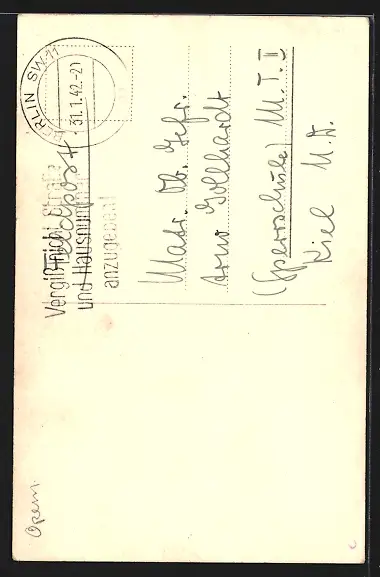 BERLIN SW 11
31.1.42.-21
Vergiß nicht Straße
und Hausnummer
anzugeben!
Feldpost
Matr. Ob. Gefr.
Arno Gollhardt
(Sperrschule) M.T.I
Kiel M.A.
Opern